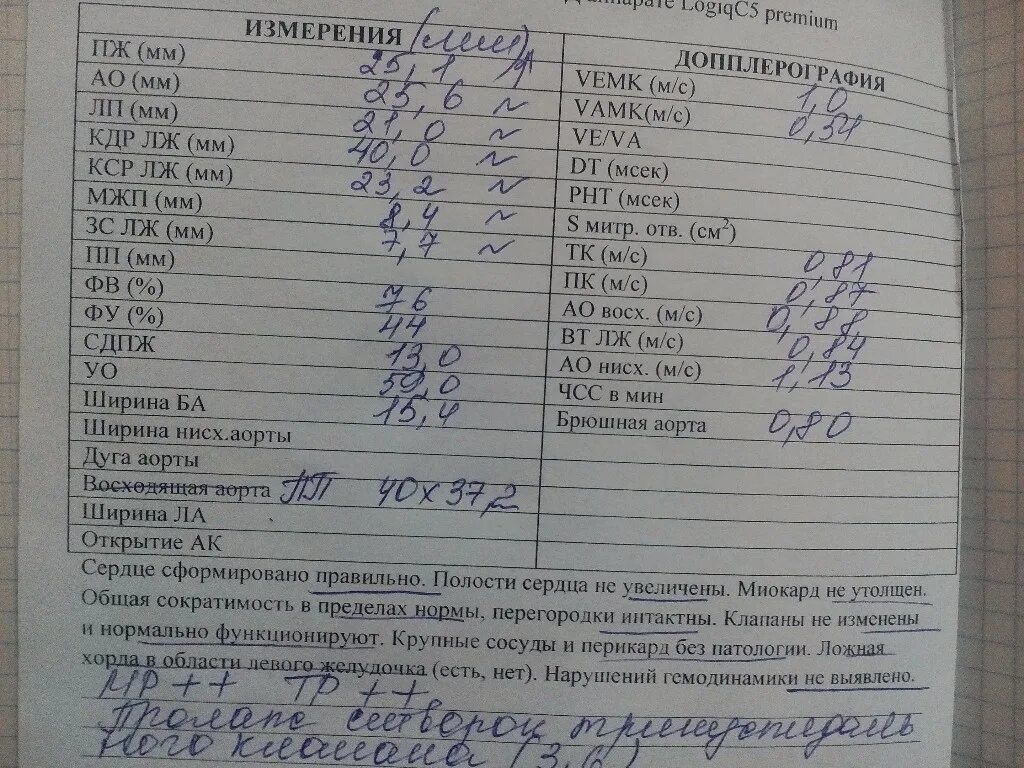 аппарате LogiqC5 premium
ИЗМЕРЕНИЯ (мм)
ПЖ (мм) 25,1 ↑
АО (мм) 25,6 ~
ЛП (мм) 21,0 ~
КДР ЛЖ (мм) 40,0 ~
КСР ЛЖ (мм) 23,2 ~
МЖП (мм) 8,4 ~
ЗС ЛЖ (мм) 7,7 ~
ПП (мм)
ФВ (%) 76
ФУ (%) 44
СДПЖ 13,0
УО 59,0
Ширина БА 15,4
Ширина нисх.аорты
Дуга аорты
Восходящая аорта ПП 40х37,2
Ширина ЛА
Открытие АК
ДОППЛЕРОГРАФИЯ
VEMK (м/с) 1,0
VAMK(м/с) 0,54
VE/VA
DT (мсек)
PHT (мсек)
S митр. отв. (см²)
ТК (м/с) 0,81
ПК (м/с) 0,87
АО восх. (м/с) 0,88
ВТ ЛЖ (м/с) 0,84
АО нисх. (м/с) 1,13
ЧСС в мин
Брюшная аорта 0,80
Сердце сформировано правильно. Полости сердца не увеличены. Миокард не утолщен.
Общая сократимость в пределах нормы, перегородки интактны. Клапаны не изменены
и нормально функционируют. Крупные сосуды и перикард без патологии. Ложная
хорда в области левого желудочка (есть, нет). Нарушений гемодинамики не выявлено.
МР ++ ТР ++
Пролапс створок трикуспидаль
ного клапана (3,6)